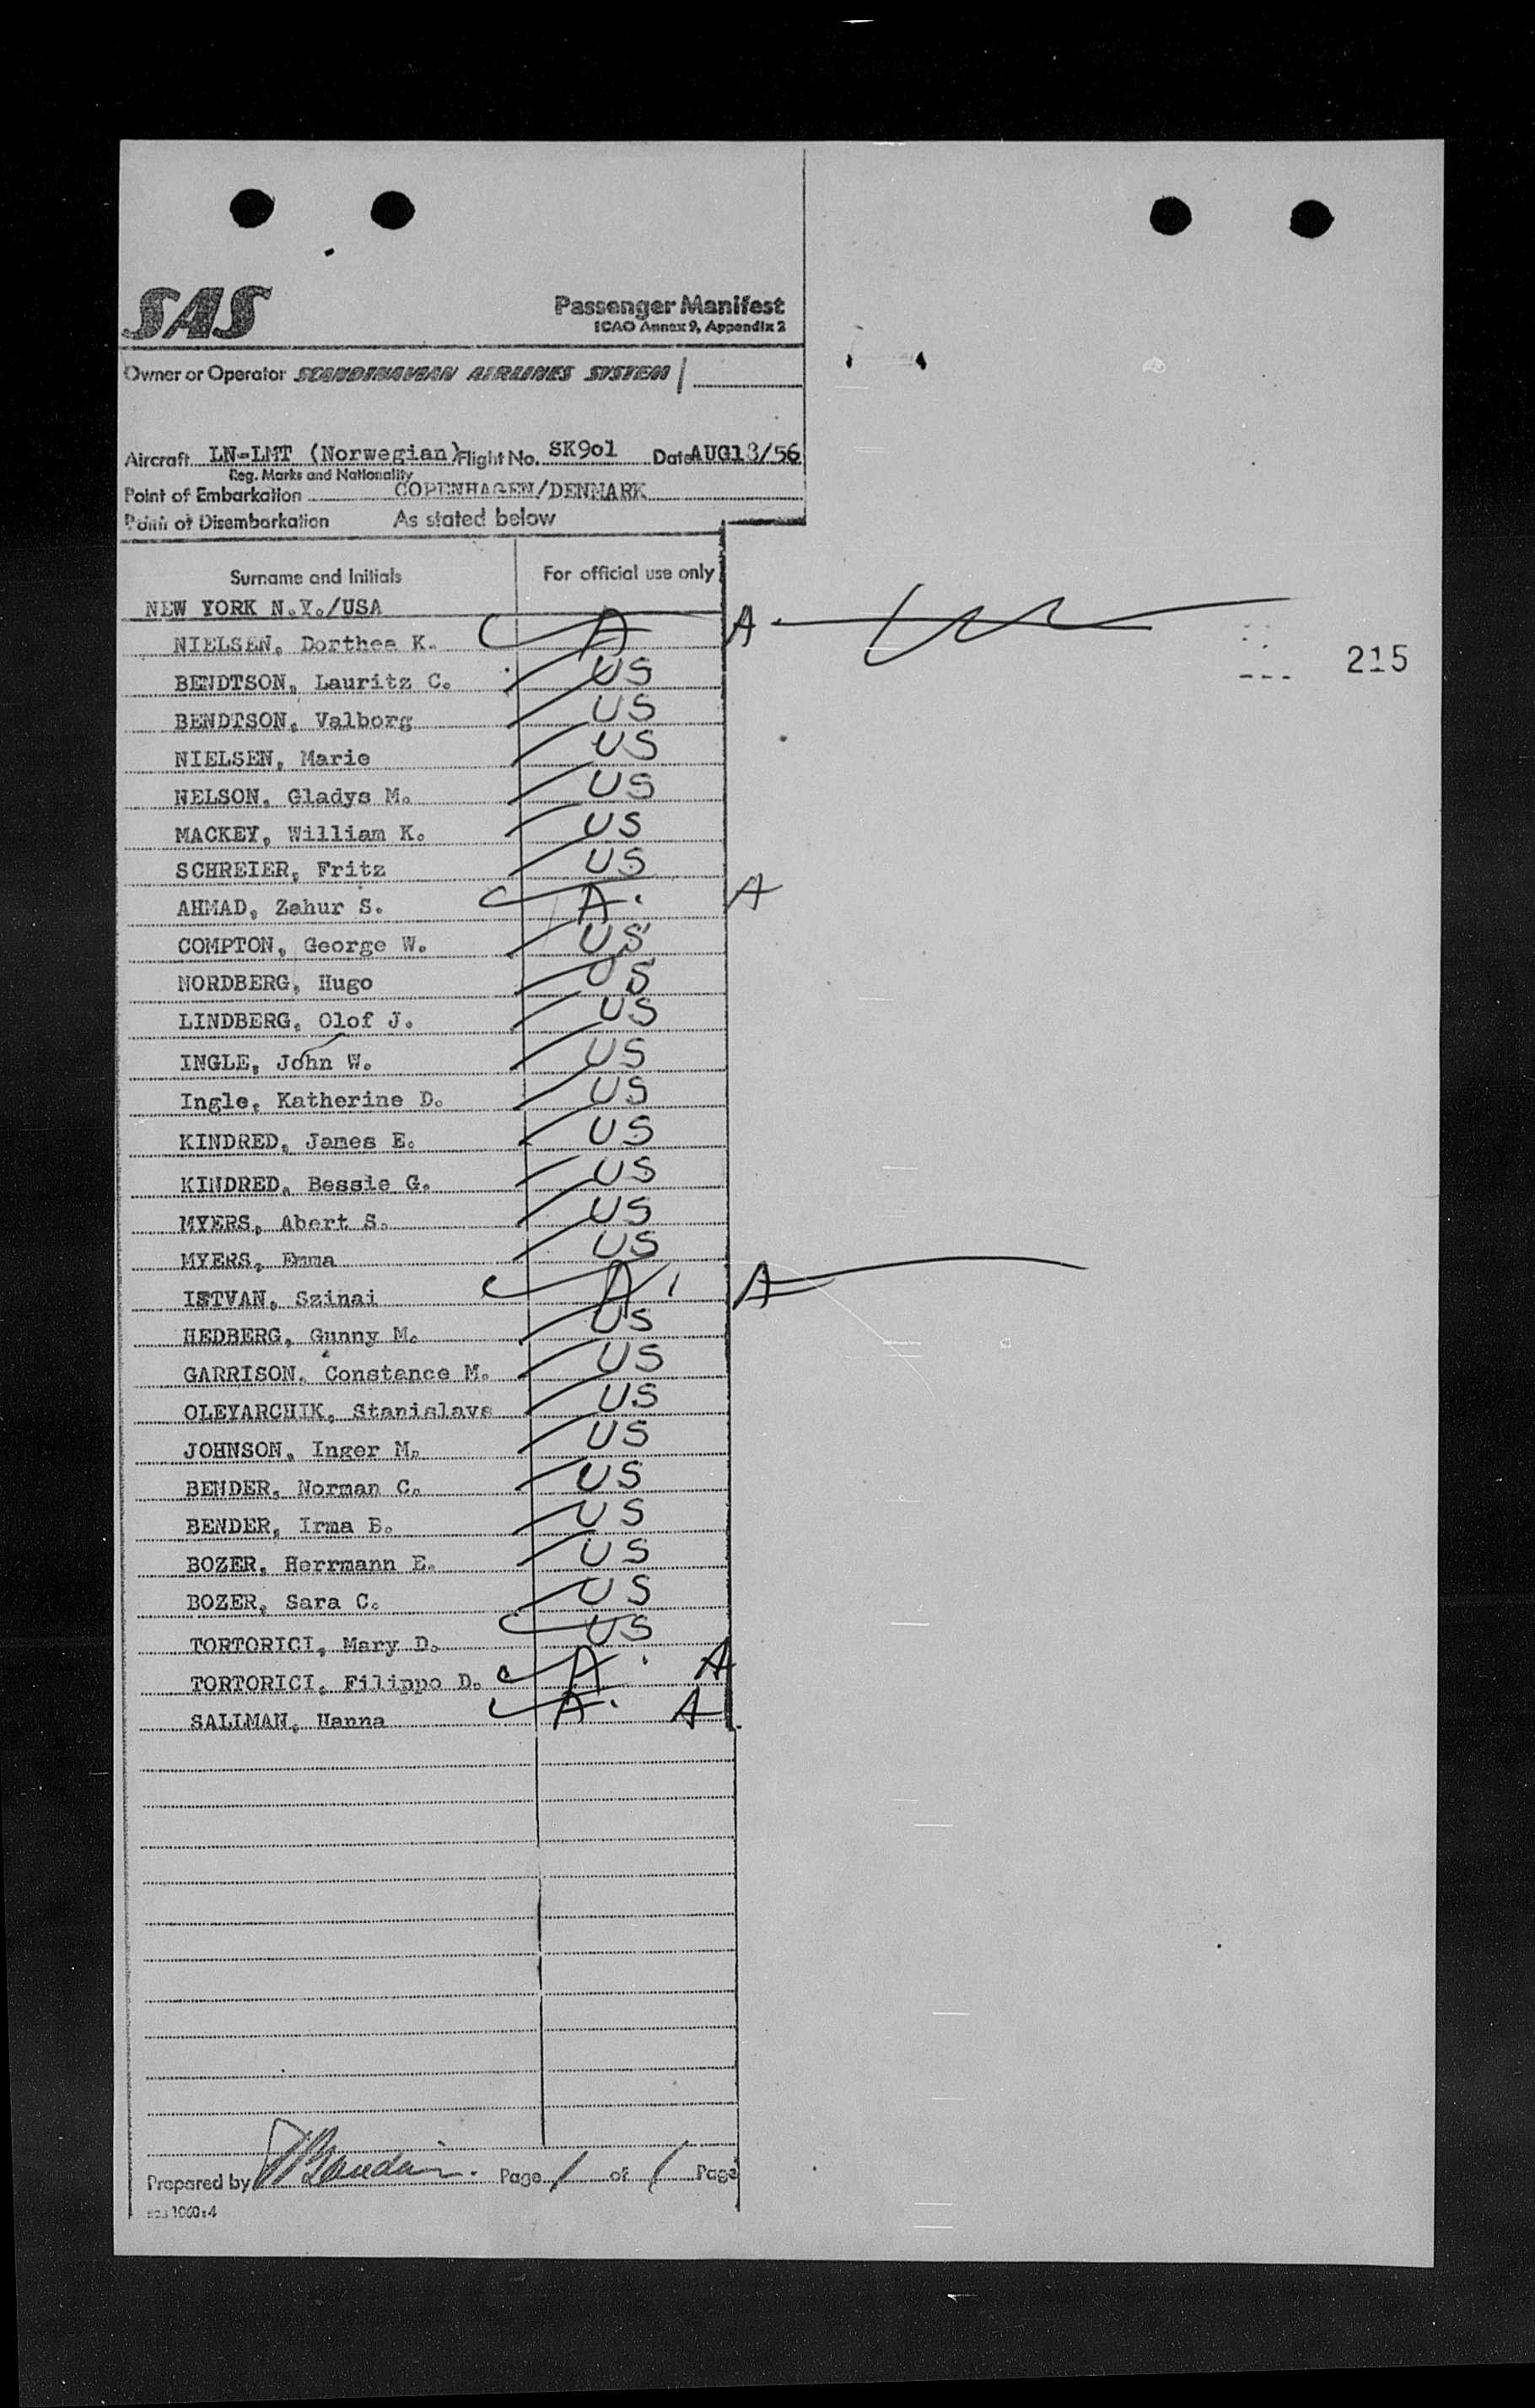 SAS
Passenger Manifest
ICAO Annex 9, Appendix 2
Owner or Operator SCANDINAVIAN AIRLINES SYSTEM
Aircraft LN-LMT (Norwegian) Flight No. SK901 Date AUG13/56
Reg. Marks and Nationality
Point of Embarkation COPENHAGEN/DENMARK
Point of Disembarkation As stated below
Surname and Initials For official use only
NEW YORK N.Y./USA
NIELSEN, Dorthea K. A A
215
BENDTSON, Lauritz C. US
BENDTSON, Valborg US
NIELSEN, Marie US
NELSON, Gladys M. US
MACKEY, William K. US
SCHREIER, Fritz US
AHMAD, Zahur S. A. A
COMPTON, George W. US
NORDBERG, Hugo US
LINDBERG, Olof J. US
INGLE, John W. US
Ingle, Katherine D. US
KINDRED, James E. US
KINDRED, Bessie G. US
MYERS, Abert S. US
MYERS, Emma US
ISTVAN, Szinai A A
HEDBERG, Gunny M. US
GARRISON, Constance M. US
OLEYARCHIK, Stanislava US
JOHNSON, Inger M. US
BENDER, Norman C. US
BENDER, Irma B. US
BOZER, Herrmann E. US
BOZER, Sara C. US
TORTORICI, Mary D. US
TORTORICI, Filippo D. A. A
SALLMAN, Hanna A. A
Prepared by Page 1 of 1 Page
sas 1060:4